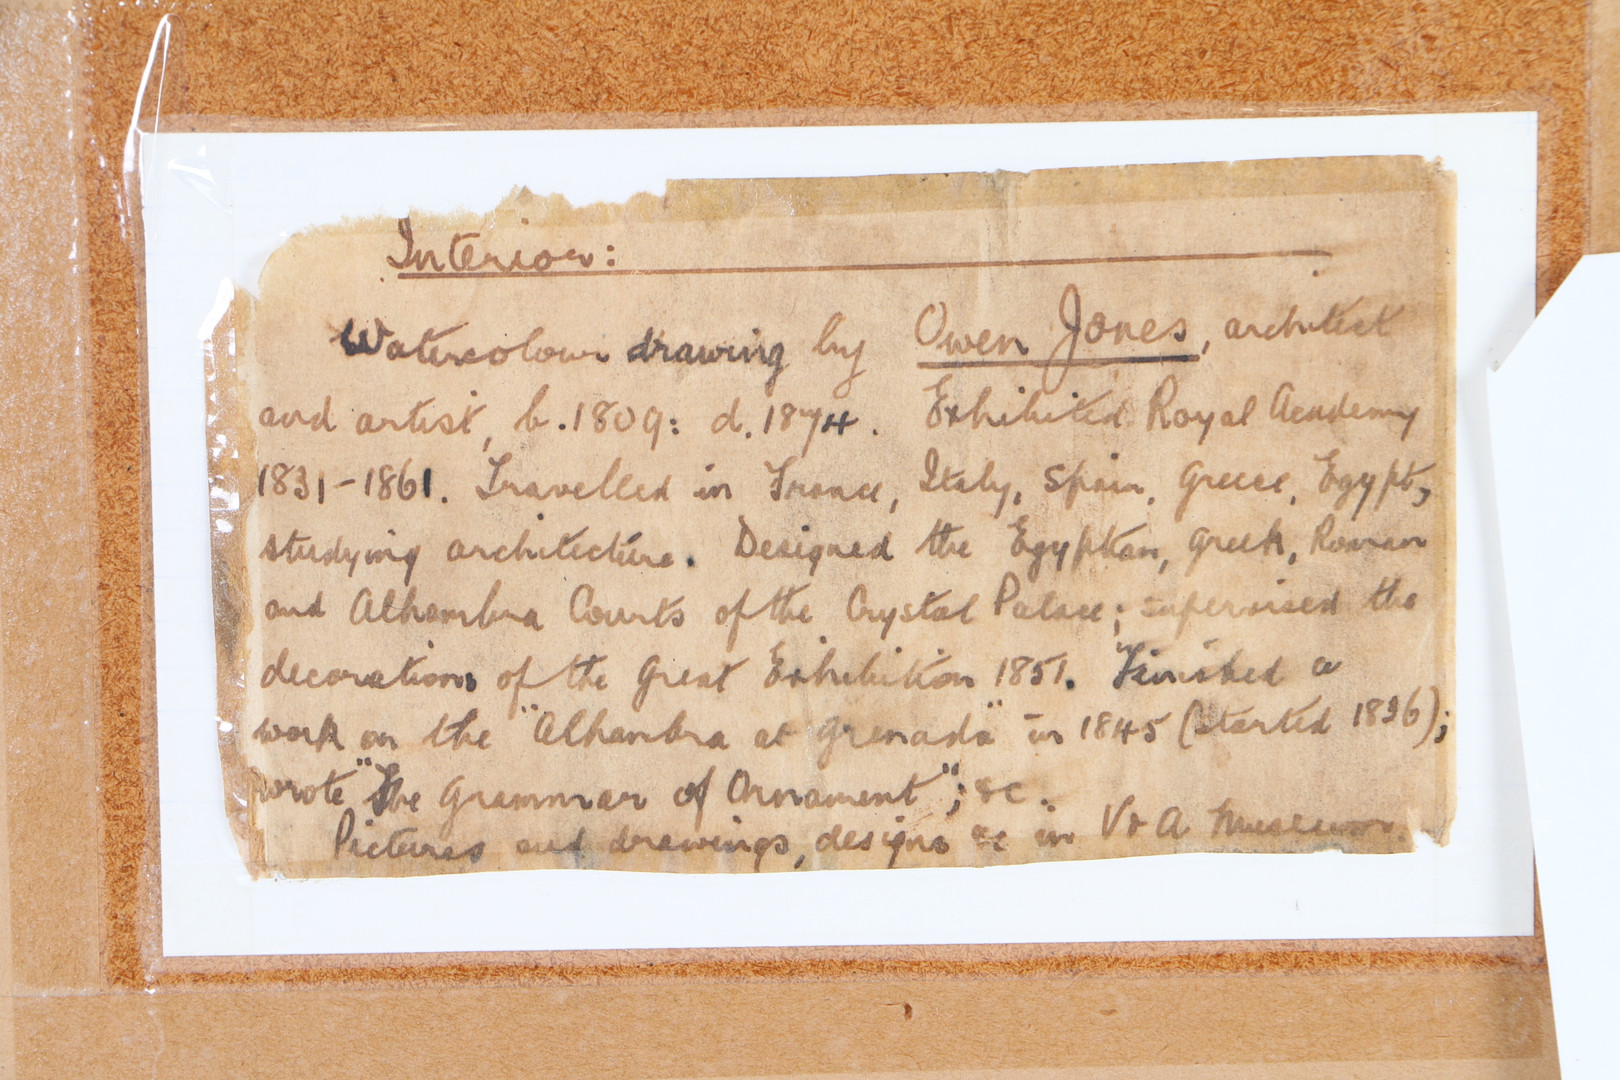 Interior:
Watercolour drawing by Owen Jones, architect
and artist, b. 1809: d. 1874. Exhibited Royal Academy
1831-1861. Travelled in France, Italy, Spain, Greece, Egypt,
studying architecture. Designed the Egyptian, Greek, Roman
and Alhambra Courts of the Crystal Palace; supervised the
decorations of the Great Exhibition 1851. Finished a
work on the "Alhambra at Grenada" in 1845 (started 1836);
wrote "The Grammar of Ornament"; &c.
Pictures and drawings, designs &c in V & A Museum.